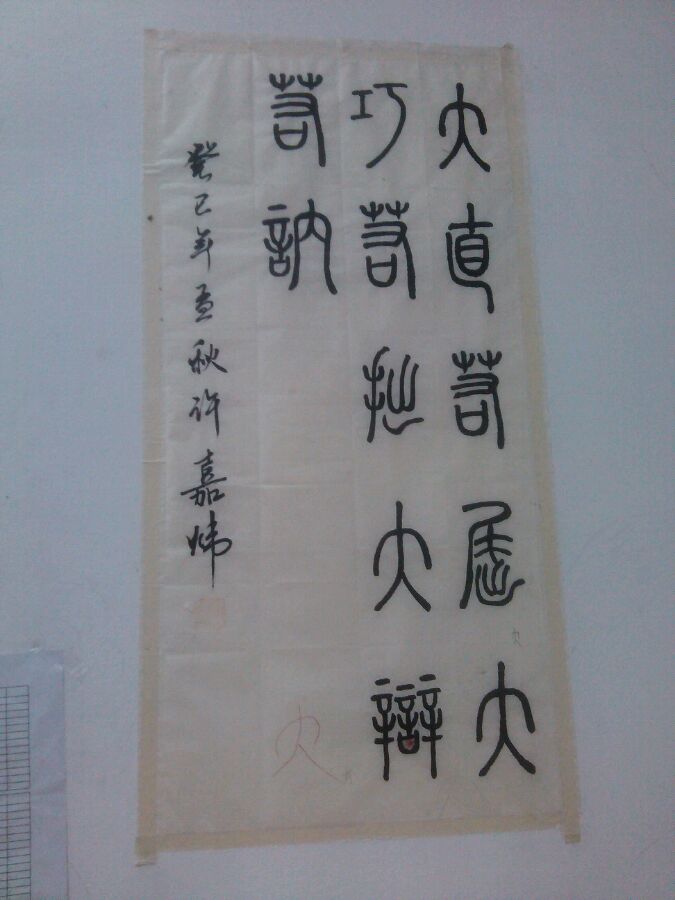 大直若屈大
巧若拙大辯
若訥
大
癸巳年孟秋许嘉炜